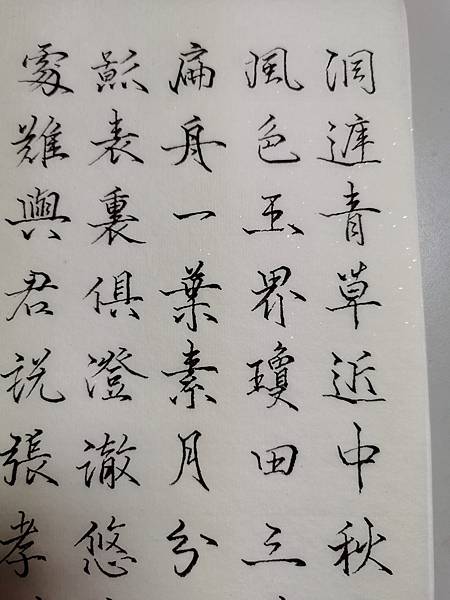 洞庭青草近中秋
風色玉界瓊田三
扁舟一葉素月分
影表裏俱澄澈悠
處難與君説張孝